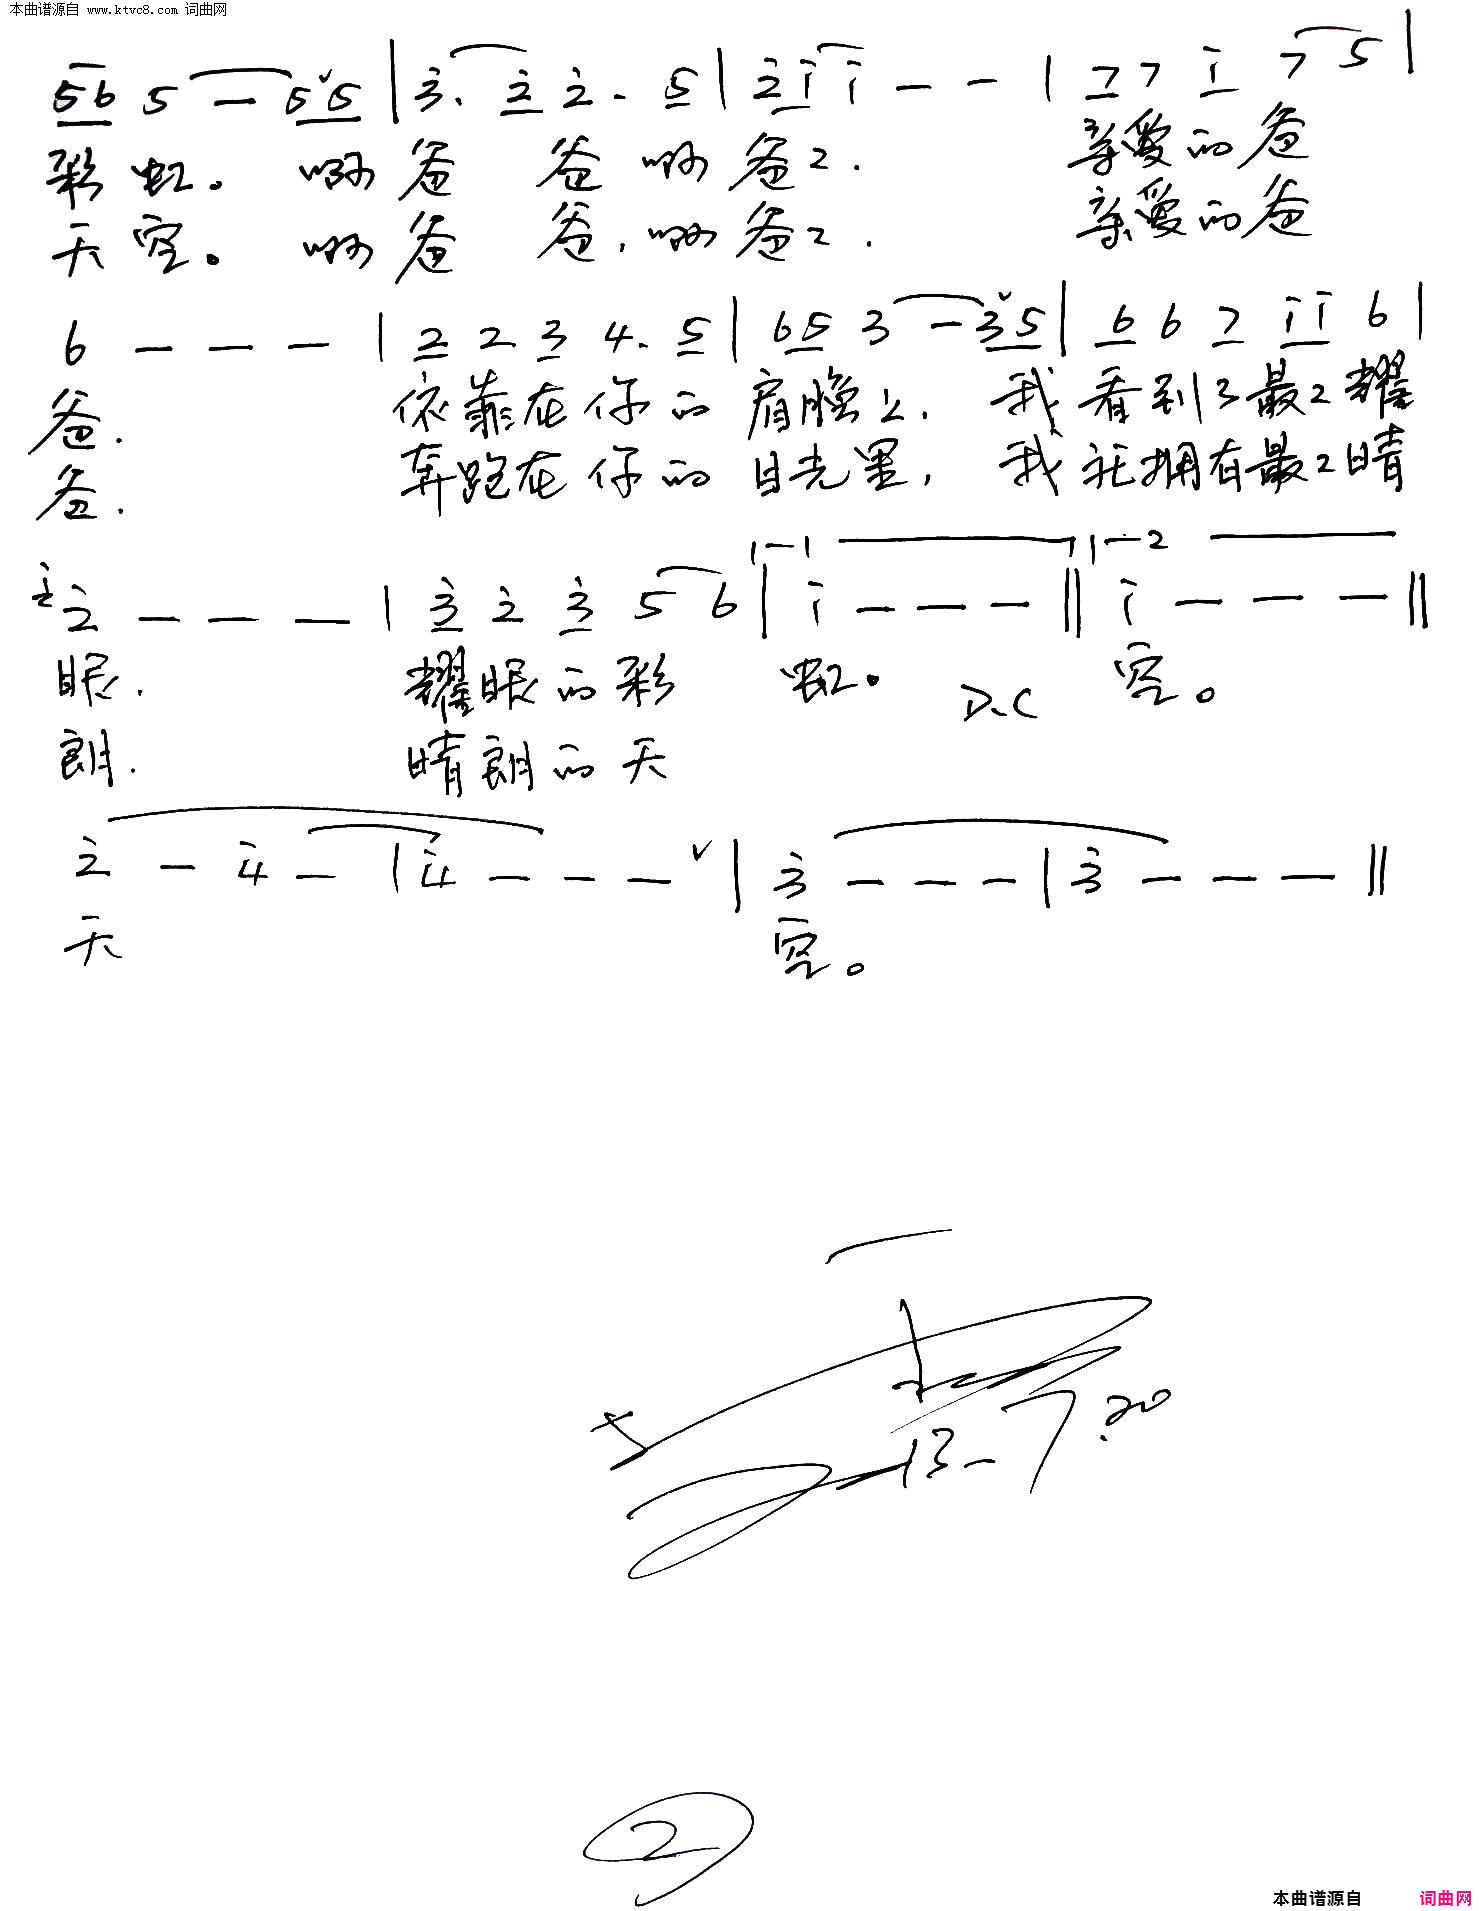 本曲谱源自 www.ktvc8.com 词曲网
56 5 — 5ˇ5 | 3̇. 2̇ 2̇. 5 | 2̇ 1̇ 1̇ — — | 7 7 1̇ 7 5 |
彩虹。 啊爸 爸 啊爸2. 亲爱的爸
天空。 啊爸 爸, 啊爸2. 亲爱的爸
6 — — — | 2 2 3 4. 5 | 65 3 — 3ˇ5 | 6 6 7 1̇ 1̇ 6 |
爸. 依靠在你的 肩膀上. 我看到了最2耀
爸. 奔跑在你的 目光里, 我 拥有最2晴
2̇ — — — | 3̇ 2̇ 3̇ 5 6 | 1̇ — — — || 1̇ — — — ||
眼. 耀眼的彩 虹。 D.C 空。
朗. 晴朗的天
2̇ — 4̇ — | 4̇ — — — ˇ | 3̇ — — — | 3̇ — — — ||
天 空。
13-7.20
2
本曲谱源自 词曲网